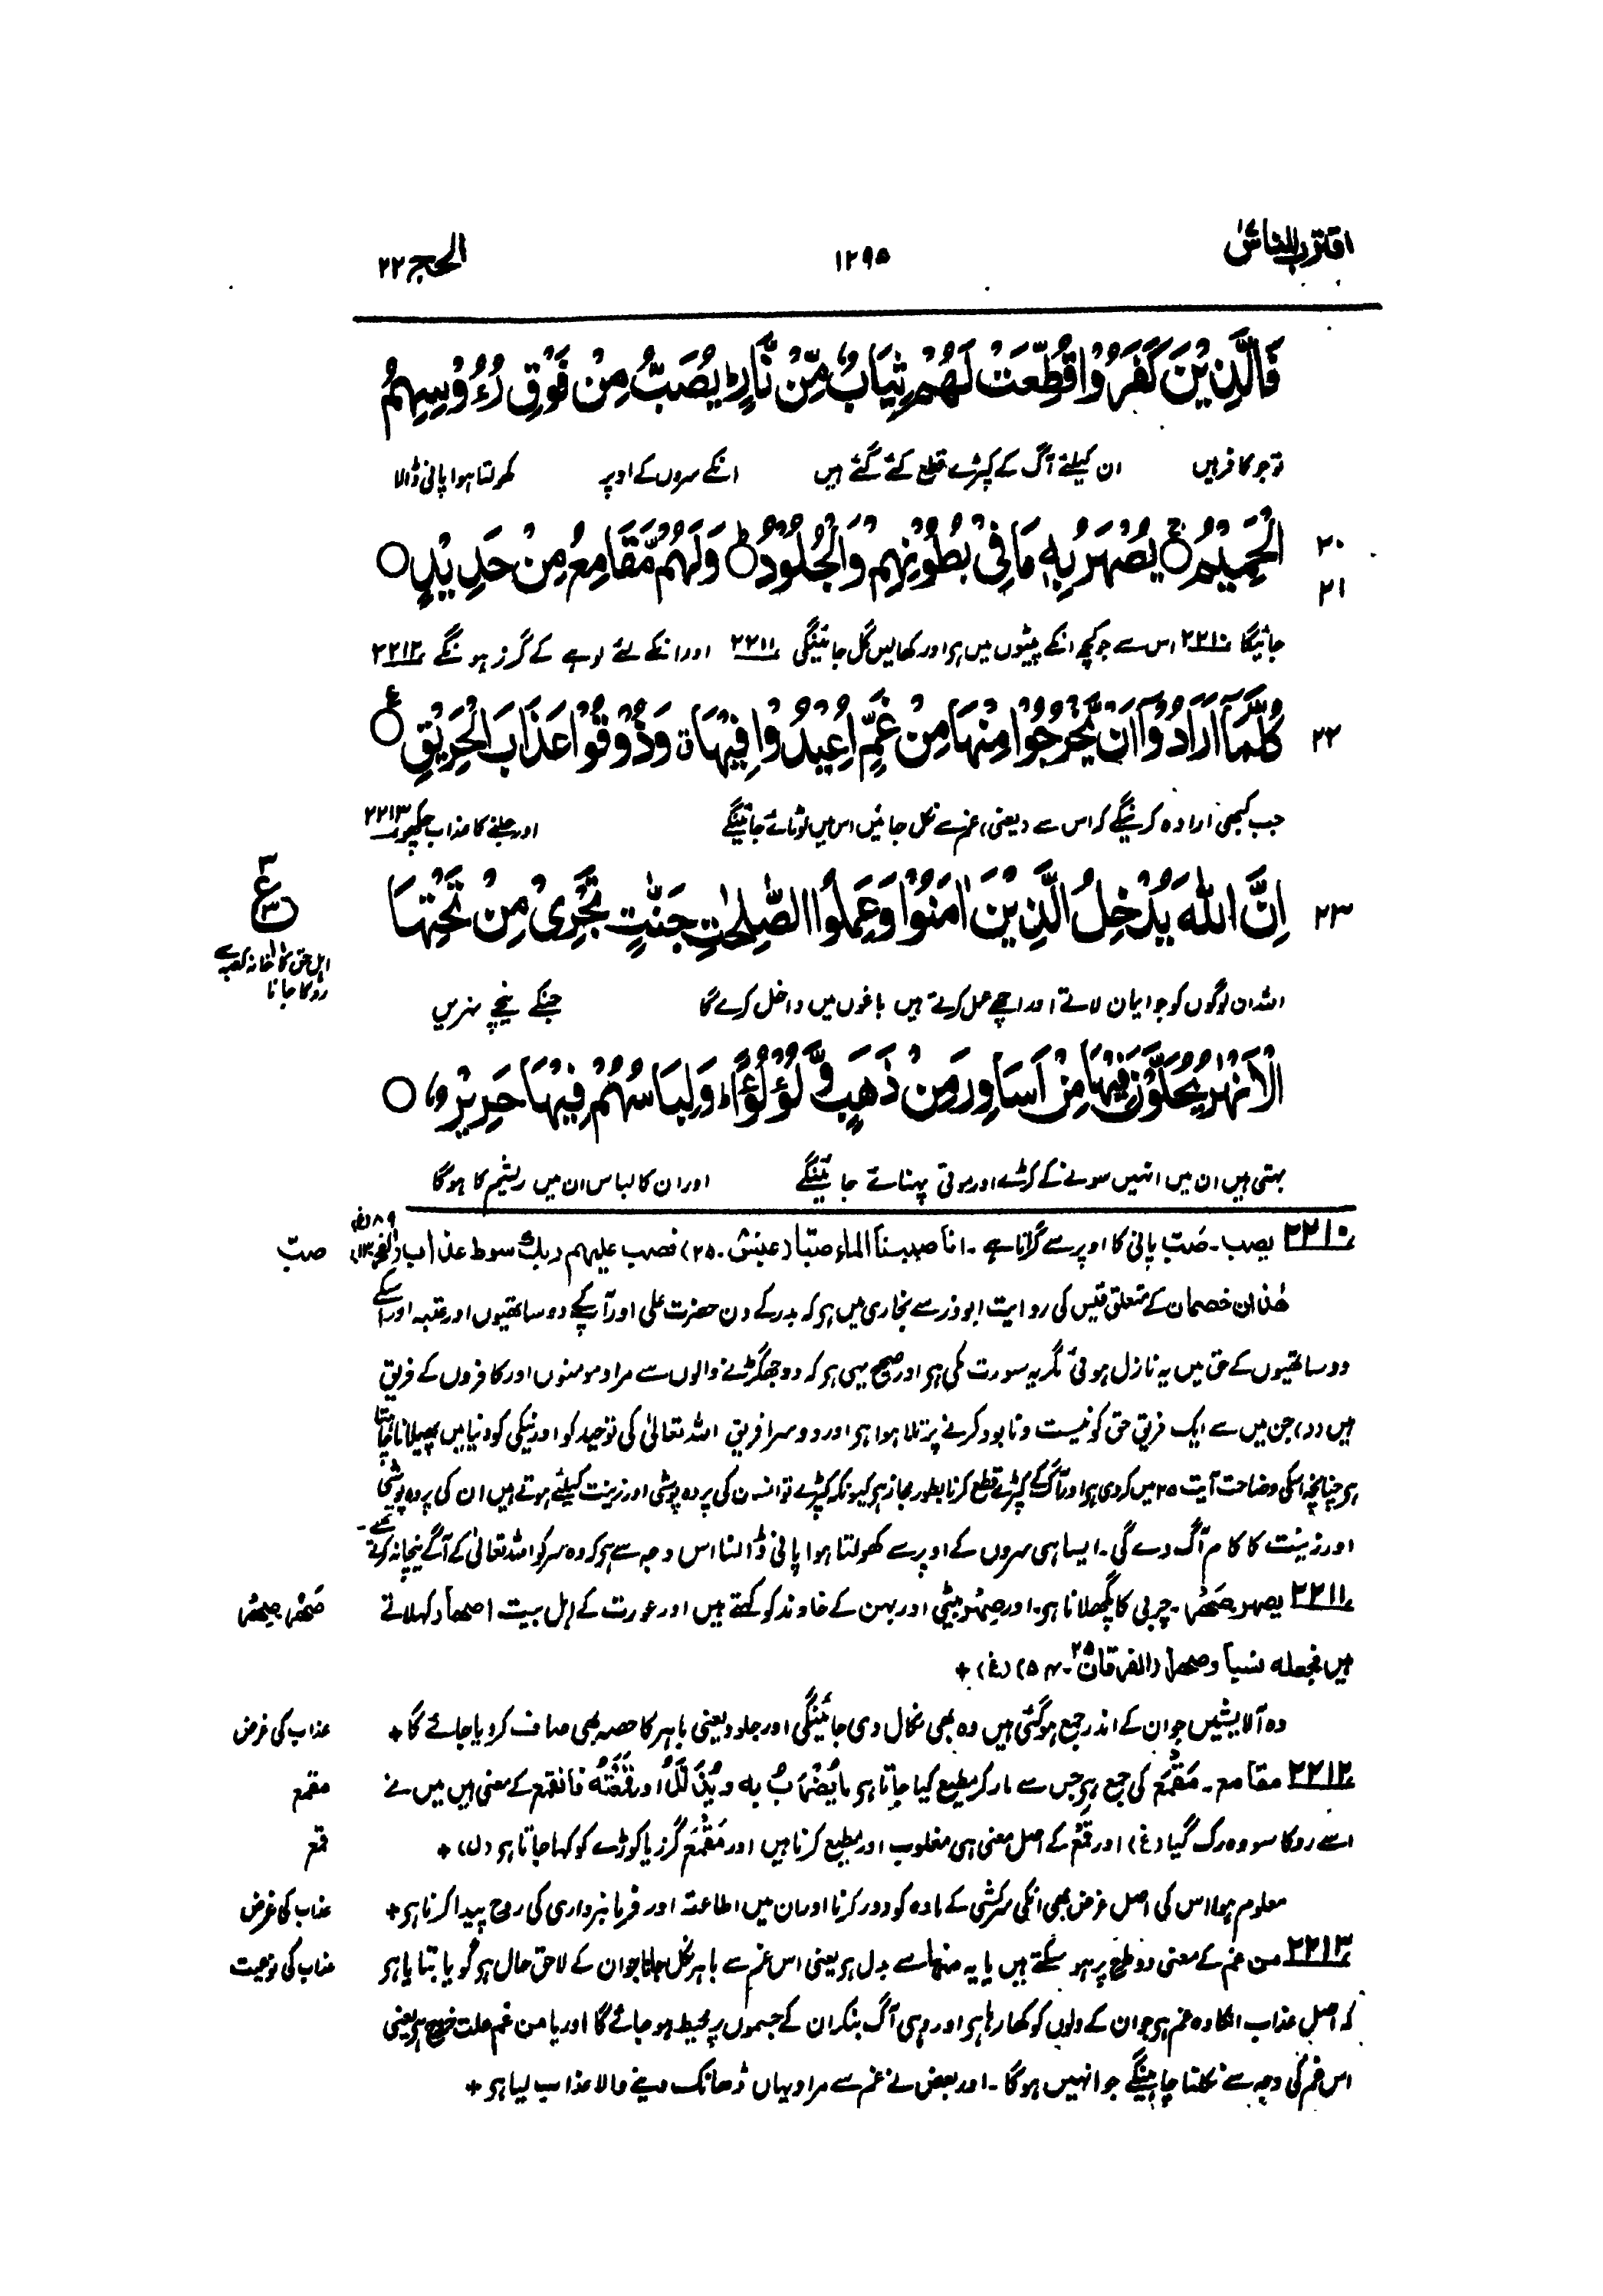 اقترب للناس ۱۲۹۵ الحج ۲۲
فَالَّذِيْنَ كَفَرُوْا قُطِّعَتْ لَهُمْ ثِيَابٌ مِّنْ نَّارٍ ؕ يُصَبُّ مِنْ فَوْقِ رُءُوْسِهِمُ
تو جو کافر ہیں ان کیلئے آگ کے کپڑے قطع کئے گئے ہیں انکے سروں کے اوپر کھولتا ہوا پانی ڈالا
۲۰ الْحَمِيْمُ ۚ○ يُصْهَرُ بِهٖ مَا فِيْ بُطُوْنِهِمْ وَالْجُلُوْدُ ؕ○ وَلَهُمْ مَّقَامِعُ مِنْ حَدِيْدٍ ○
۲۱
جائیگا ۲۲۱۰ اس سے جو کچھ انکے پیٹوں میں ہو اور کھالیں گل جائینگی ۲۲۱۱ اور انکے لئے لوہے کے گرز ہونگے ۲۲۱۲
۲۲ كُلَّمَآ اَرَادُوْٓا اَنْ يَّخْرُجُوْا مِنْهَا مِنْ غَمٍّ اُعِيْدُوْا فِيْهَا ۚ وَذُوْقُوْا عَذَابَ الْحَرِيْقِ ○ ع
جب کبھی ارادہ کرینگے کہ اس سے (یعنی) غم سے نکل جائیں اس میں لوٹائے جائینگے اور جلنے کا عذاب چکھو ۲۲۱۳
۲۳ اِنَّ اللّٰهَ يُدْخِلُ الَّذِيْنَ اٰمَنُوْا وَعَمِلُوا الصّٰلِحٰتِ جَنّٰتٍ تَجْرِيْ مِنْ تَحْتِهَا
۳ ع ۳
اہل حق کا خانہ کعبہ سے
روکا جانا
اللہ ان لوگوں کو جو ایمان لاتے اور اچھے عمل کرتے ہیں باغوں میں داخل کرے گا جنکے نیچے نہریں
الْاَنْهٰرُ يُحَلَّوْنَ فِيْهَا مِنْ اَسَاوِرَ مِنْ ذَهَبٍ وَّ لُؤْلُؤًا ؕ وَلِبَاسُهُمْ فِيْهَا حَرِيْرٌ ○
بہتی ہیں ان میں انہیں سونے کے کڑے اور موتی پہنائے جائینگے اور ان کا لباس ان میں ریشم کا ہوگا
۲۲۱۰ يصب ۔ صَبّ پانی کا اوپر سے گرانا ہے ۔ انا صببنا الماء صبّا (عبس ۔ ۲۵) فصب عليهم ربك سوط عذاب (الفجر ۸۹ ۔ ۱۳) (غ) صبّ
ھذان خصمان کے متعلق قیس کی روایت ابوذر سے بخاری میں ہو کہ بدر کے دن حضرت علی اور آپ کے دو ساتھیوں اور عتبہ اور اسکے
دو ساتھیوں کے حق میں یہ نازل ہوئی مگر یہ سورت مکی ہو اور صحیح یہی ہو کہ دو جھگڑنے والوں سے مراد مومنوں اور کافروں کے فریق
ہیں (د) جن میں سے ایک فریق حق کو نیست و نابود کرنے پر تلا ہوا ہو اور دوسرا فریق اللہ تعالیٰ کی توحید کو اور نیکی کو دنیا میں پھیلانا چاہتا
ہو چنانچہ اسکی وضاحت آیت ۲۵ میں کر دی ہو اور آگ کے کپڑے قطع کرنا بطور مجاز ہو کیونکہ کپڑے تو انسان کی پردہ پوشی اور زینت کیلئے ہوتے ہیں ان کی پردہ پوشی
اور زینت کا کام آگ دے گی ۔ ایسا ہی سروں کے اوپر سے کھولتا ہوا پانی ڈالنا اس وجہ سے ہو کہ وہ سر کو اللہ تعالیٰ کے آگے نیچا نہ کرتے تھے ۔
۲۲۱۱ يصهر صَهْر ۔ چربی کا پگھلانا ہو ۔ اور صِهْر بیٹی اور بہن کے خاوند کو کہتے ہیں اور عورت کے اہل بیت اصهار کہلاتے صَهْر صِهْر
ہیں فجعله نسبا وصهرا (الفرقان ۲۵ ۔ ۵۴) (غ) +
وہ آلایشیں جو ان کے اندر جمع ہو گئی ہیں وہ بھی نکال دی جائینگی اور جلود یعنی باہر کا حصہ بھی صاف کر دیا جائے گا + عذاب کی غرض
۲۲۱۲ مقامع ۔ مَقْمَع کی جمع ہو جس سے مار کر مطیع کیا جاتا ہو مَا يُضْرَبُ به ويُذَلَّلُ اور قَمَعْتُه فانقمع کے معنی ہیں میں نے مقمع
اسے روکا سو وہ رک گیا (غ) اور قَمْع کے اصل معنی ہی مغلوب اور مطیع کرنا ہیں اور مَقْمَع گرز یا کوڑے کو کہا جاتا ہو (ل) + قمع
معلوم ہوا اس کی اصل غرض بھی انکی سرکشی کے مادہ کو دور کرنا اور ان میں اطاعت اور فرمانبرداری کی روح پیدا کرنا ہو + عذاب کی غرض
۲۲۱۳ من غم کے معنی دو طرح پر ہو سکتے ہیں یا یہ منها سے بدل ہو یعنی اس غم سے باہر نکل جانا جو ان کے لاحق حال ہو گویا بتایا ہو عذاب کی نوعیت
کہ اصل عذاب انکا وہ غم ہو جو ان کے دلوں کو کھا رہا ہو اور وہی آگ بنکر ان کے جسموں پر محیط ہو جائے گا اور یا من غم علت خروج ہو یعنی
اس غم کی وجہ سے نکلنا چاہینگے جو انہیں ہوگا ۔ اور بعض نے غم سے مراد یہاں ڈھانک دینے والا عذاب لیا ہو +